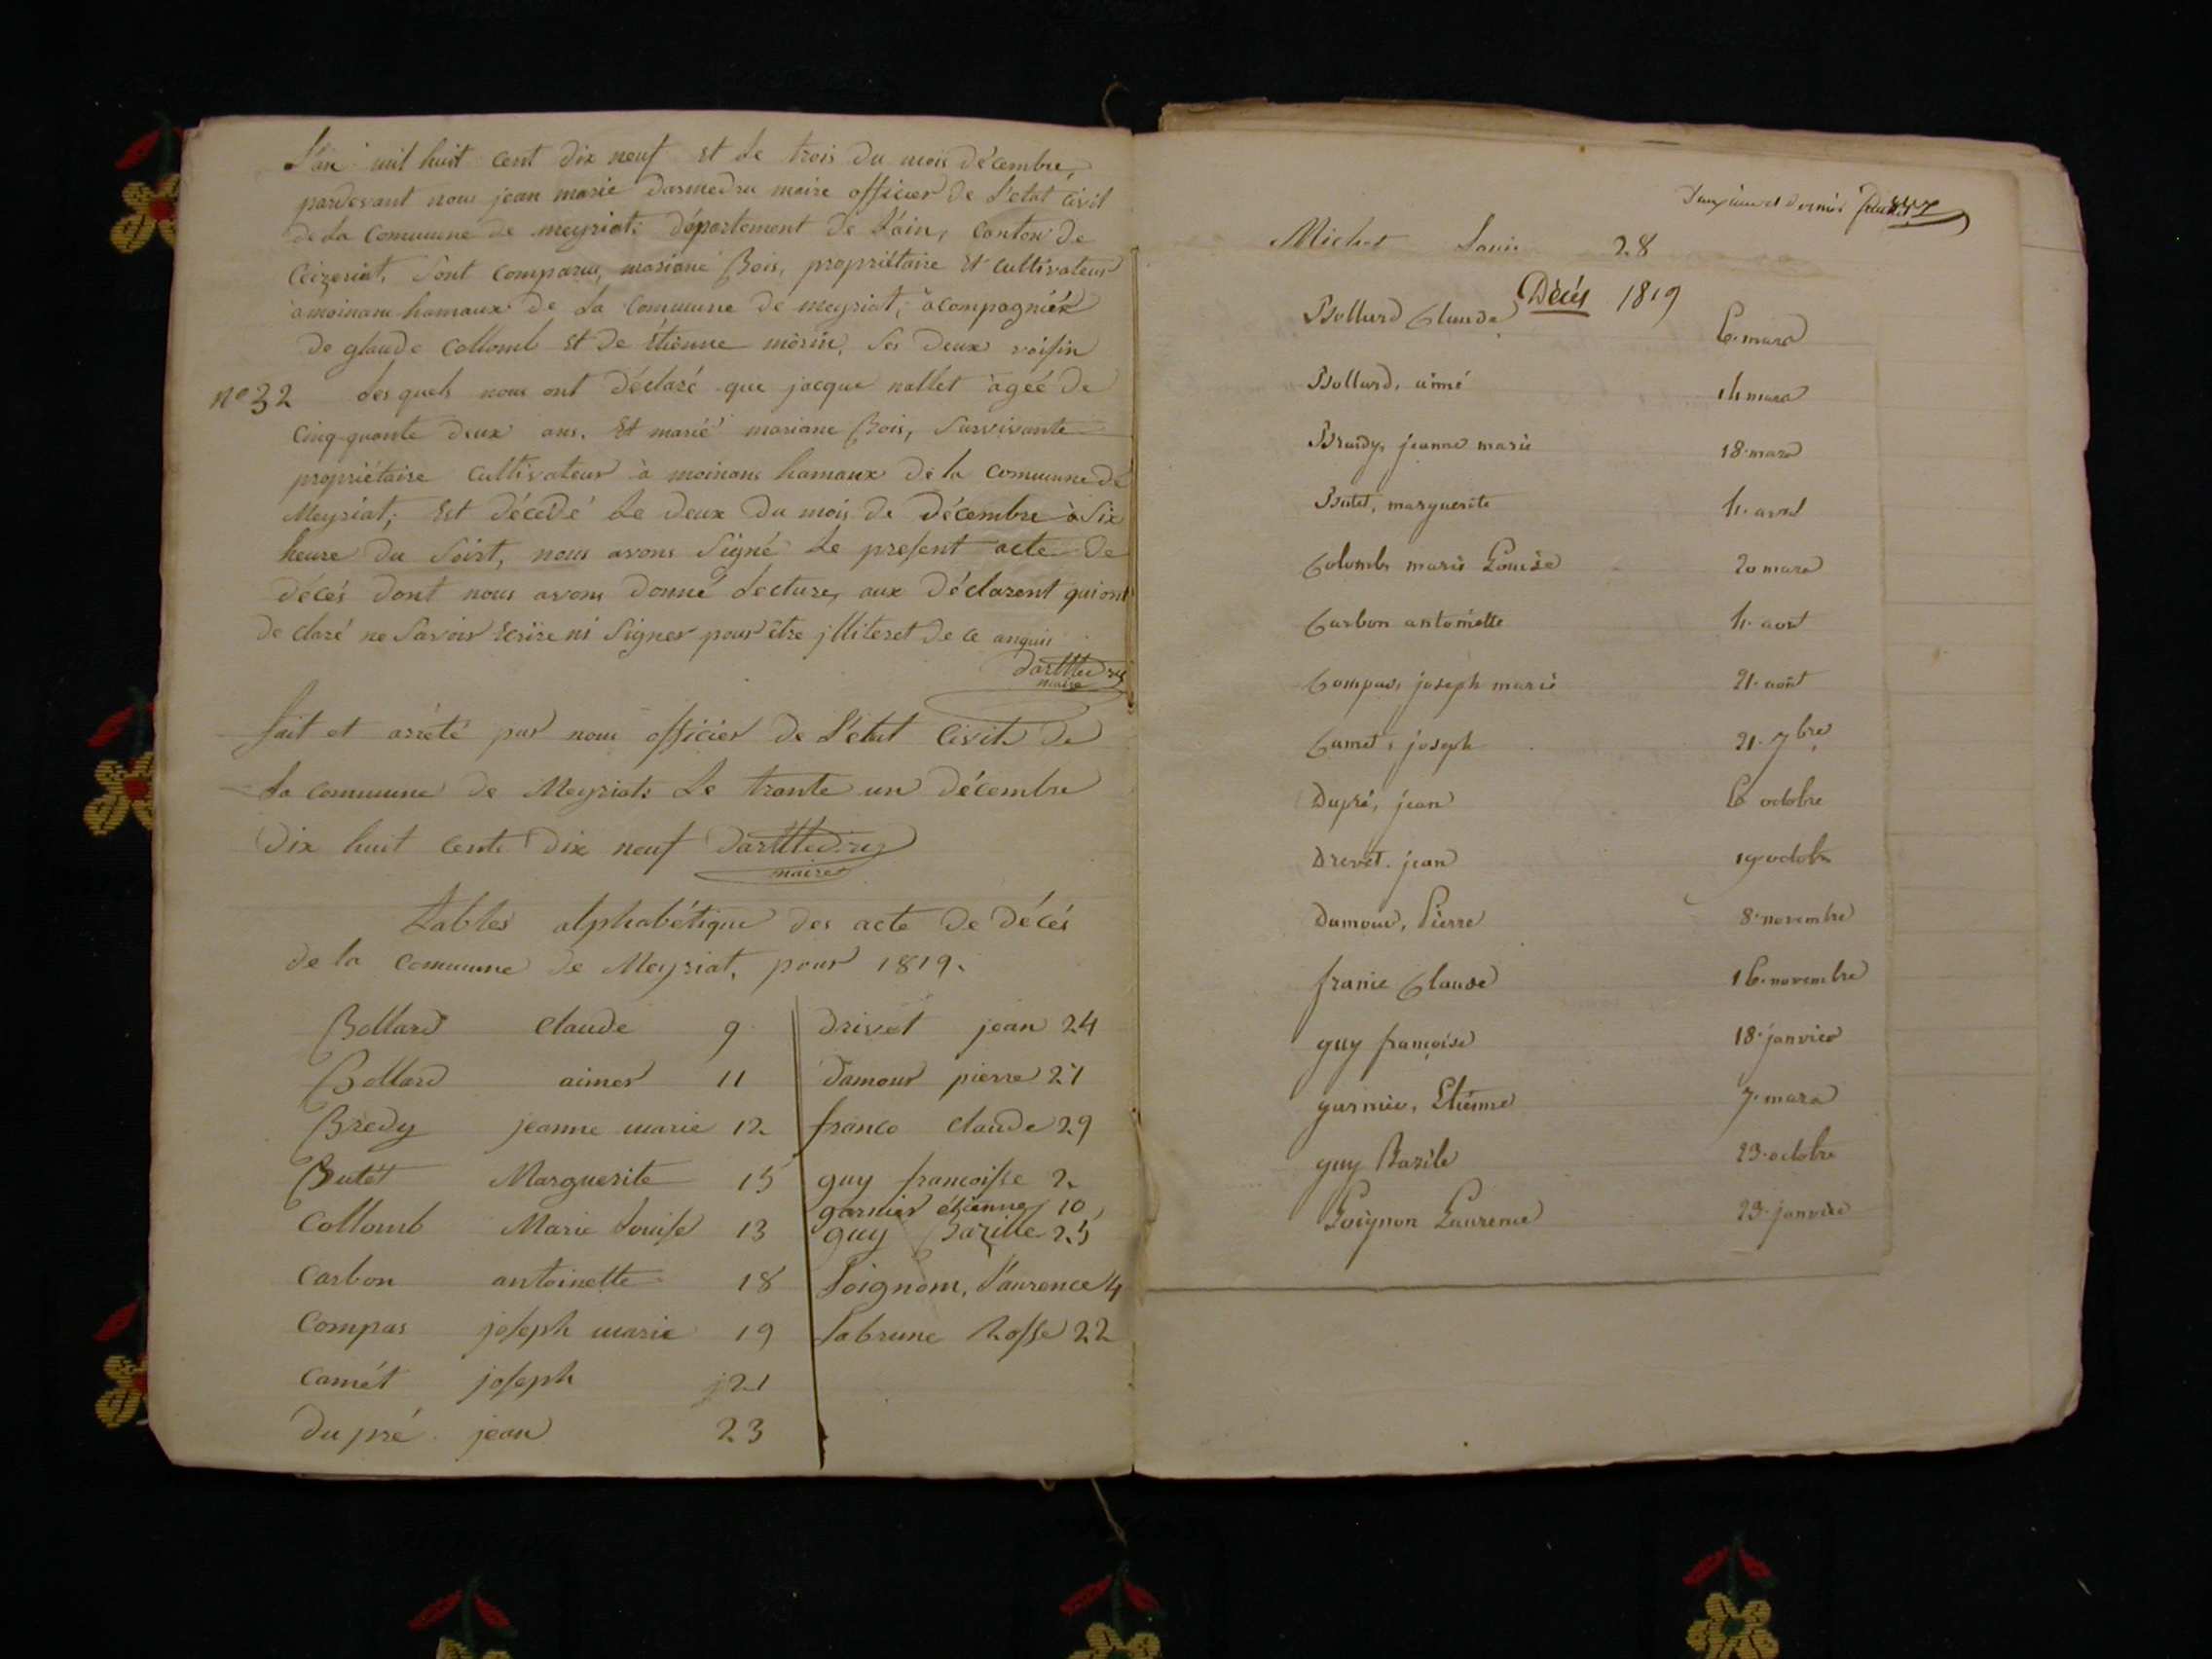 L'an mil huit cent dix neuf et le trois du mois décembre,
pardevant nous jean marie darmedru maire officier de l'etat civil
de la commune de meyriat; département de l'ain, canton de
Ceizeriat, sont comparu, mariane Bois, propriétaire et cultivateur
à moinans hamaux de la commune de meyriat; acompagnéé
de glaude collomb et de étienne morin, ses deux voisin
n° 32 lesquels nous ont déclaré que jacque nallet àgéé de
cinq-quante deux ans. et marié mariane Bois, survivante
propriétaire cultivateur à moinans hamaux de la commune de
Meyriat; est décédé le deux du mois de décembre à six
heure du soirt, nous avons signé le present acte de
décés dont nous avons donné lecture, aux déclarent qui ont
declaré ne savoir écrire ni signer pour être jlliteret de ce
darmedru
maire
fait et arrété par nous officier de l'etat civil de
la commune de Meyriat le trante un décembre
dix huit cent dix neuf darmedru
maire
tables alphabétique des acte de décés
de la commune de Meyriat, pour 1819.
Bollard claude 9
Bollard aimer 11
Bredy jeanne marie 12
Butét Marguerite 15
Collomb Marie Louise 13
Carbon antoinette 18
Compas joseph marie 19
Camét joseph 21
Dupré jean 23
drivet jean 24
damour pierre 27
franc claude 29
guy francoisse 2
garnier étienne 10
guy Bazille 25
Loignom, Laurence 4
Labrune Rosse 22
Deuxieme et dernier feuillet
Michet Louis 28
Décés 1819
Bollard Claude 6. mars
Bollard, aimé 14 mars
Braidy, jeanne marie 18. mars
Butet, marguerite 4. avril
Colomb marie Louise 20 mars
Carbon antoinette 4. aout
Compas, joseph marie 21. août
Camet, joseph 21. 7bre
Dupré, jean 6 octobre
Drevet. jean 19 octobre
Damour, Pierre 8. novembre
franc Claude 16. novembre
guy françoise 18. janvier
garnier, Etienne 7. mars
guy Bazile 23. octobre
Loignon Laurence 23. janvier